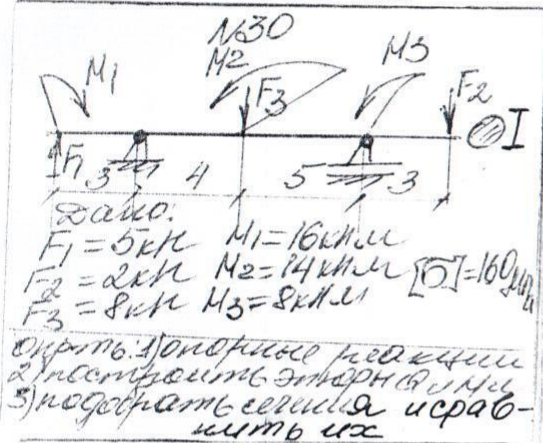 №30
M1 M2 F3 M3 F2
I
F1 3 4 5 3
Дано:
F1 = 5кН M1 = 16кНм
F2 = 2кН M2 = 14кНм [σ] = 160мпа
F3 = 8кН M3 = 8кНм
опр-ть: 1) опорные реакции
2) построить эпюры Q и Ми
3) подобрать сечения и срав-
нить их